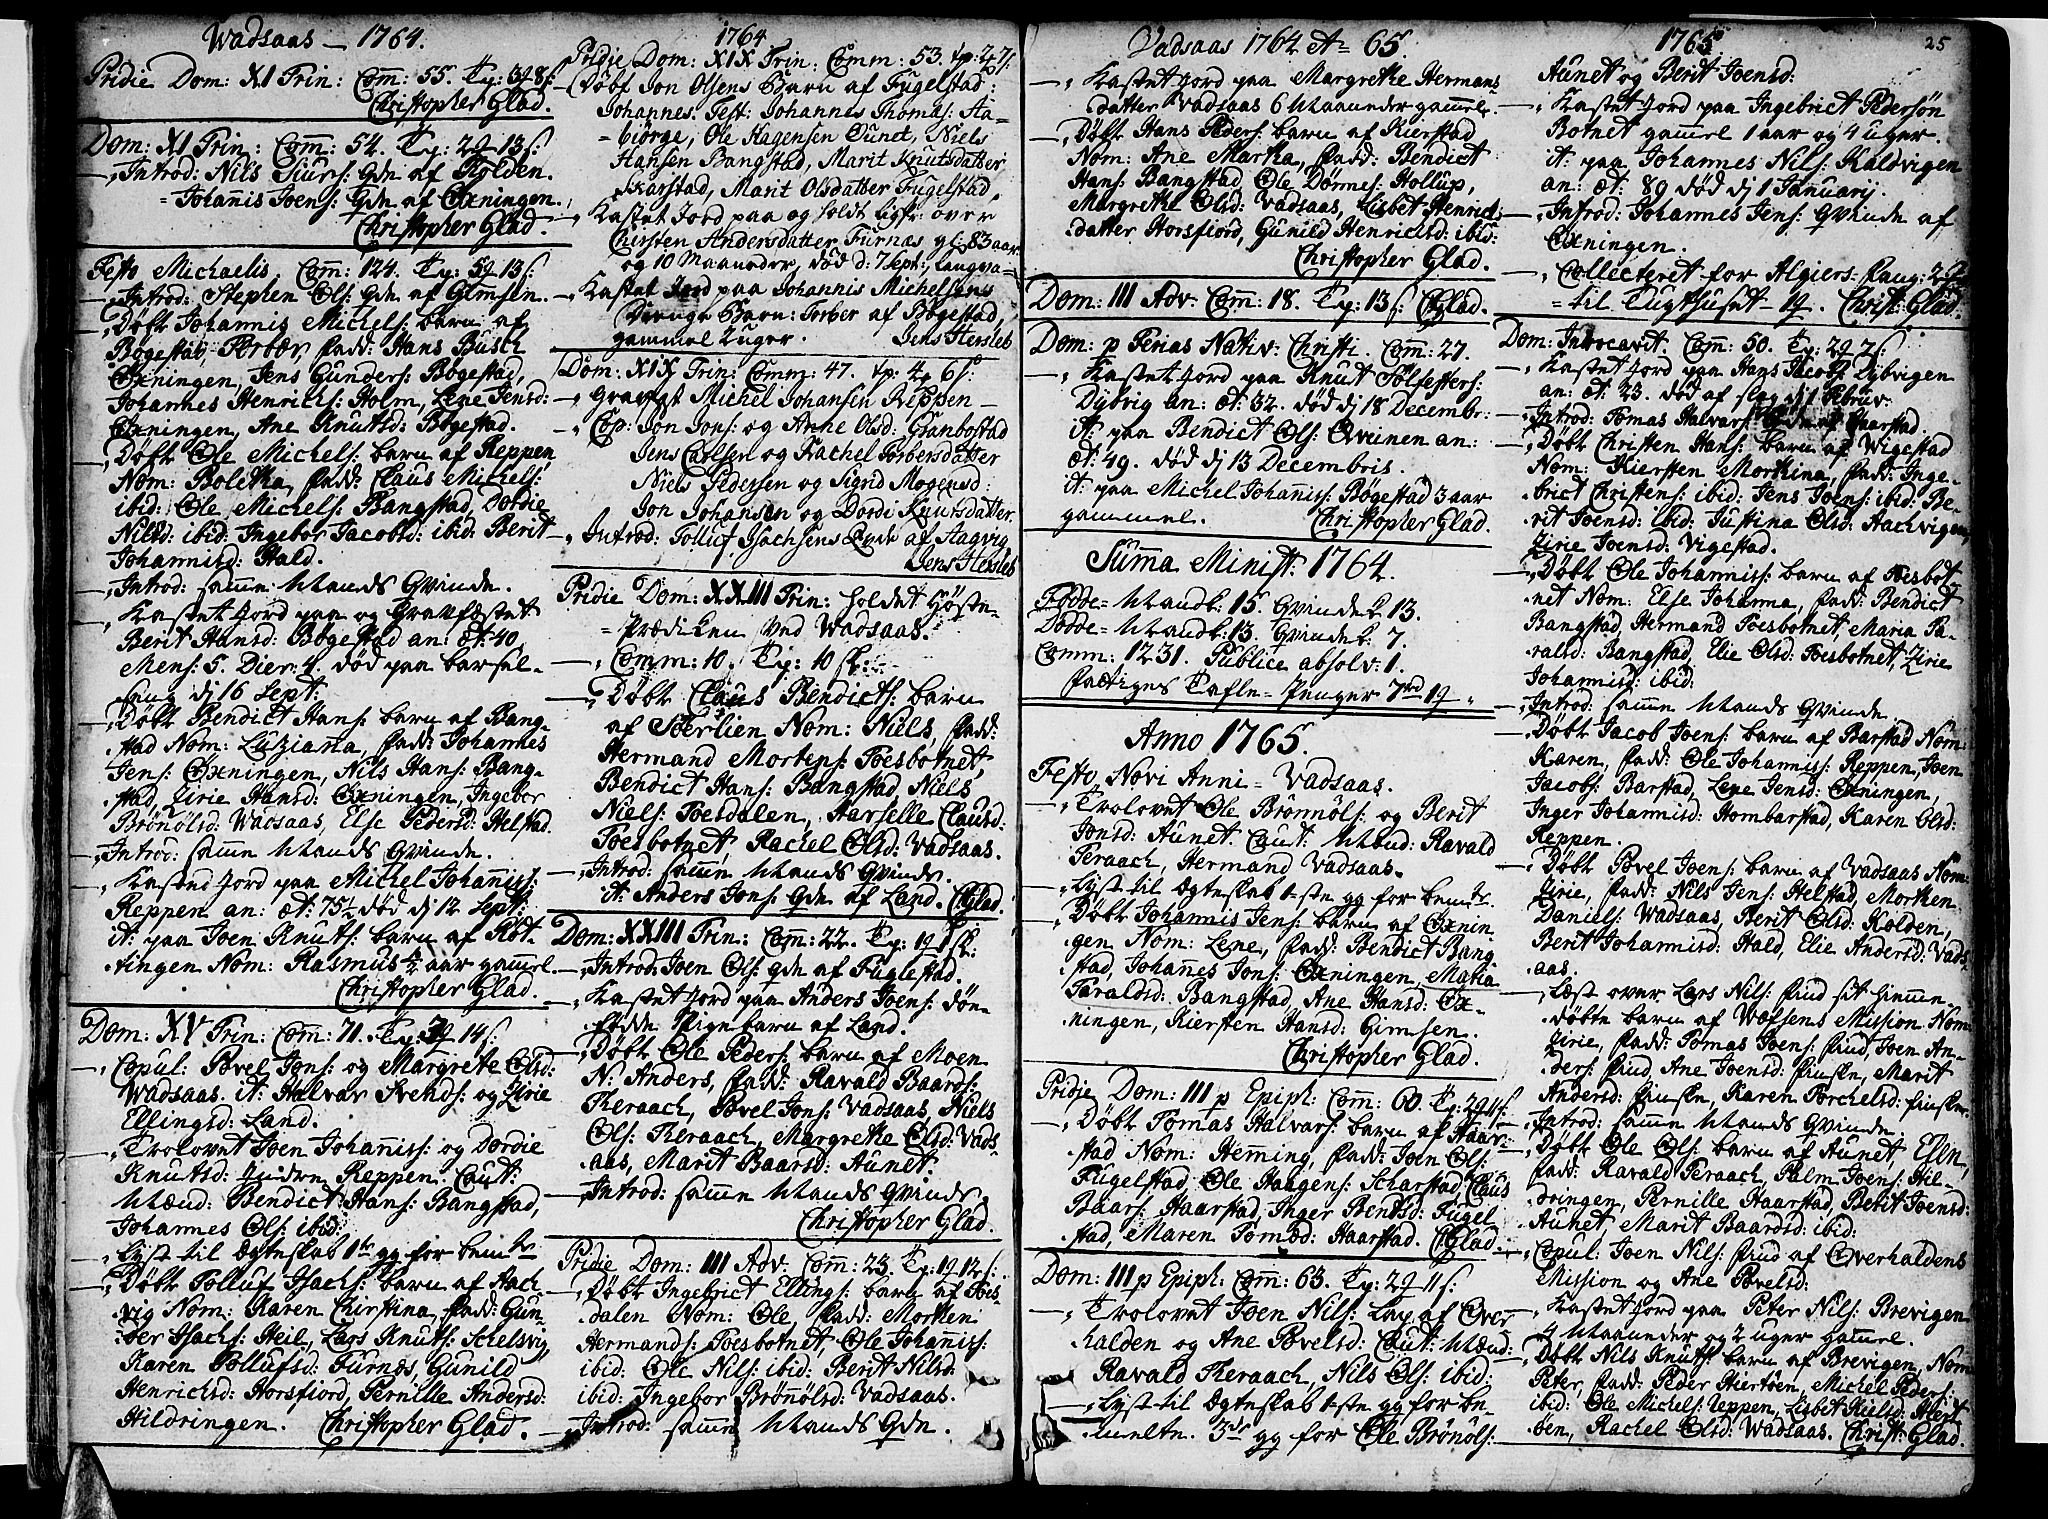 Wadsaas – 1764.
Pridie Dom: XI Trin: Com̄: 55. Tp: 3 8 s:
Christopher Glad.
Dom: XI Trin: Com̄: 54. Tp: 2 13 s:
Introd: Nils Siurs: Qde af Kolden.
Johanis Joens: Qde af Oxningen.
Christopher Glad.
Festo Michaelis Com̄: 124. Tp: 5 13 s:
Introd: Stephen Ols: Qde af Gimsen.
Døbt Johannis Michels: barn af
Bøgestad, Torber, fadd: Hans Busch
Oxningen, Jens Gunders: Bøgestad,
Johannes Henrichs: Holm, Lene Jensd:
Oxningen, Ane Knutsd: Bøgestad.
Døbt Ole Michels: barn af Reppen
Nom: Boletha, fadd: Claus Michels:
ibid: Ole Michels: Bangstad, Dordie
Nilsd: ibid: Ingebor Jacobsd: ibid: Berit
Johannisd: Hald.
Introd: samme Mands Qvinde.
Kastet Jord paa og Gravfæstet
Berit Hansd: Bøgestad an: æt: 40,
Mens: 5. Dier: 4. død paa barsel-
seng dj 16 Sept:
Døbt Bendict Hans: barn af Bang-
stad Nom: Lutziana, fadd: Johannes
Jens: Oxningen, Nils Hans: Bang-
stad, Zirie Hansd: Oxningen, Ingebor
Brønølsd: Wadsaas, Else Pedersd: Helstad.
Introd: samme Mands Qvinde.
Kasted Jord paa Michel Johaniss:
Reppen an: æt: 75½ død dj 12 Sept:
it: paa Joen Knuts: barn af Røt-
tingen Nom: Rasmus ½ aar gammel.
Christopher Glad.
Dom: XV Trin: Com̄: 71. Tp: 3 14 s:
Copul: Povel Jons: og Margrete Olsd:
Wadsaas. it: Halvar Svends: og Zirie
Ellingsd: Land.
Trolovet Joen Johaniss: og Dordie
Knutsd: Indre Reppen. Caut:
Mænd: Bendict Hans: Bangstad,
Johannes Ols: ibid:
Lyst til Ægteskab 1te gg for bemte
Døbt Tolluf Isachs: barn af Aach-
vig Nom: Karen Chirstina, fadd: Gun-
der Isachs: Heil, Lars Knuts: Schelsvig,
Karen Tollufsd: Furnæs, Gunild
Henrichsd: Horsfiord, Pernille Andersd:
Hildringen. Christopher Glad.
1764
Pridie Dom: XIX Trin: Comm: 53. tp: 2 7 s:
Døbt Jon Olsens Barn af Fugelstad:
Johannes. Test: Johannes Thomas: Aa-
biörge, Ole Hagensen Ounet, Niels
Hansen Bangstad, Marit Knutsdatter
Skarstad, Marit Olsdatter Fugelstad,
Kastet Jord paa og holdt ligpr: over
Chirsten Andersdatter Furnæs gl: 83 aar
og 10 Maaneder, død d: 7 Sept:
Kastet Jord paa Johannis Michelsens
Barn: Torber af Bøgestad,
gammel 2 uger. Jens Hersleb
Dom: XIX Trin: Comm: 47. tp: 4 6 s:
Gravfæst Michel Johansen Reppen –
Cop: Jon Jons: og Anne Olsd: Granbostad
Jens Carlsen og Rachel Torbersdatter
Niels Pedersen og Sigrid Mogensd:
Jon Johansen og Dordi Knutsdatter
Introd: Tolluf Isachsens Qinde af Aagvig
Jens Hersleb
Pridie Dom: XXIII Trin: holdet Høste-
Prædiken ved Wadsaas.
Comm: 10. Tp: 10 s:
Døbt Claus Bendicts: barn
af Sørlien Nom: Niels, fadd:
Hermand Mortens: Foesbotnet,
Bendict Hans: Bangstad, Niels
Niels: Foesdalen, Harselle Clausd:
Foesbotnet, Rachel Olsd: Vadsaas.
Introd: samme Mands Qvinde.
it: Anders Jons: Qde af Land. CGlad.
Dom: XXIII Trin: Com̄: 22. Tp: 1 1 s:
Introd: Joen Ols: Qde af Fuglestad.
Kastet Jord paa Anders Joens: død-
fødde Pigebarn af Land.
Døbt Ole Peders: barn af Moen
N: Anders, fadd: Ravald Baards:
Theraach, Povel Jons: Vadsaas, Niels
Ols: Theraach, Margrethe Olsd: Vads-
aas, Marit Baarsd: Aunet.
Introd: samme Mands Qvinde.
Christopher Glad.
Pridie Dom: III Adv. Com̄: 23. Tp: 1 12 s:
Døbt Ingebrict Ellings: barn af Foes-
dalen Nom: Ole, fadd: Morten
Hermands: Foesbotnet, Ole Johaniss:
ibid: Ole Nils: ibid: Berit Nilsd:
ibid: Ingebor Brønølsd: Vadsaas.
Introd: samme Mands Qde.
Vadsaas 1764 A– 65.
Kastet Jord paa Margrethe Hermans
datter Vadsaas 6 Maaneder gammel.
Døbt Hans Peders: barn af Kierstad
Nom: Ane Martha, fadd: Bendict
Hans: Bangstad, Ole Dønnes: Hollup,
Margrethe Olsd: Vadsaas, Lisbet Henrics-
datter Horsfiord, Gunild Henrichsd: ibid:
Christopher Glad.
Dom: III Adv: Com̄: 18. Tp: 13 s CGlad.
Dom: p Ferias Nativ: Christi. Com̄: 27.
Kastet Jord paa Knut Tolfesters:
Dybvig an: æt: 32. død dj 18 Decembr:
it: paa Bendict Ols: Qveinen an:
æt: 49. død dj 13 Decembris.
it: paa Michel Johaniss: Bøgestad 3 aar
gammel. Christopher Glad.
Summa Minist: 1764.
Fødde – Mandk: 15. Qvindek 13.
Dødde – Mandk: 13. Qvindek: 7.
Comm: 1231. Publice absolv: 1.
Fattiges Tafle-Penger 7rd 1
Anno 1765.
Festo Novi Anni – Vadsaas.
Trolovet Ole Brønnøls: og Berit
Jonsd: Aunet. Caut: Mænd: Ravald
Teraach, Hermand Vadsaas.
Lyst til Ægteskab 1ste gg for bemte.
Døbt Johannis Jens: barn af Oxnin-
gen Nom: Lene, fadd: Bendict Bang-
stad, Johanes Jons: Oxningen, Maria
Taraldsd: Bangstad, Ane Hansd: Ox-
ningen, Kiersten Hansd: Gimsen.
Christopher Glad.
Pridie Dom: III p Epiph: Com̄: 60. Tp: 2 11 s:
Døbt Tomas Halvars: barn af Haar-
stad Nom: Heming, fadd: Joen Ols:
Fugelstad, Ole Haagens: Scharstad, Claus
Baars: Haarstad, Inger Bentsd: Fugel-
stad, Maren Tomæd: Haarstad. CGlad.
Dom: III p Epiph: Com̄: 63. Tp: 2 11 s:
Trolovet Joen Nils: Lap af Over-
halden og Ane Povelsd: Caut: Mænd:
Ravald Theraach, Nils Ols: ibid:
Lyst til Ægteskab 1ste gg for be-
meltn. 3de gg for Ole Brønøls:
1765. 25
Aunet og Berit Joensd:
Kastet Jord paa Ingebrict Pedersøn
Botnet gammel 1 aar og 4 uger.
it: paa Johannes Nils: Kaldvigen
an: æt: 89 død dj 1 Januarij.
Introd: Johannes Jens: Qvinde af
Oxningen.
Collecteret for Algiers-fang:
til Tugthuset – 1. Christ: Glad.
Dom: Invocavit. Com̄: 50. Tp: 2 7 s:
Kastet Jord paa Hans Jacobs: Dybvigen
an: æt: 23. død af slag dj 1 Febru:
Introd: Tomas Halvars: Qde af Haarstad.
Døbt Christen Hans: barn af Vigestad
Nom: Kiersten Morthina, fadd: Inge-
brict Christens: ibid: Jens Joens: ibid: Be-
rit Joensd: ibid: Justina Olsd: Aachvigen,
Zirie Joensd: Vigestad.
Døbt Ole Johaniss: barn af Foesbot-
net Nom: Else Johanna, fadd: Bendict
Bangstad, Hermand Foesbotnet, Maria Ta-
ralsd: Bangstad, Elie Olsd: Foesbotnet, Zirie
Johannisd: ibid:
Introd: samme Mands Qvinde
Døbt Jacob Joens: barn af Barstad Nom:
Karen, fadd: Ole Johaniss: Reppen, Joen
Jacobs: Barstad, Lene Jensd: Oxningen,
Inger Johannisd: Hombarstad, Karen Olsd:
Reppen.
Døbt Povel Joens: barn af Vadsaas Nom:
Zirie, fadd: Nils Jens: Helstad, Morthen
Daniels: Wadsaas, Berit Olsd: Kolden,
Berit Johannisd: Hald, Elie Andersd: Vads-
aas.
Læst over Lars Nils: find sit hiemme-
døbte barn af Wefsens Mission Nom:
Zirie, fadd: Tomas Joens: find, Joen An-
ders: find, Ane Joensd: finske, Marit
Andersd: finske, Karen Torchelsd: finske.
Introd: samme Mands Qvinde.
Døbt Ole Ols: barn af Aunet, Ellen,
fadd: Ravald Teraach, Palm Joens: Hil-
dringen, Pernille Haarstad, Berit Joensd:
Aunet, Marit Baardsd: ibid:
Copul: Joen Nils: find af Overhaldens
Mission og Ane Povelsd:
Kastet Jord paa Peter Nils: Brevigen
4 Maaneder og 2 uger gammel.
Døbt Nils Knuts: barn af Brevigen, Nom:
Peter, fadd: Peder Hiertøen, Michel Peders:
ibid: Ole Michels: Reppen, Lisbet Nielsd: Hiert-
øen, Rachel Olsd: Wadsaas. Christ: Glad.